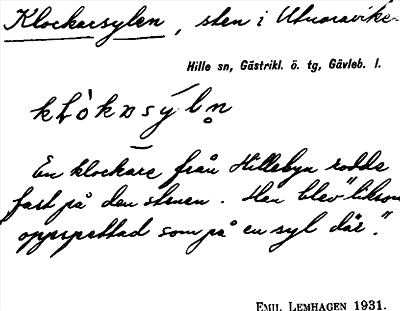 Klockarsylen, sten i Utnoravike-
Hille sn, Gästrikl. ö. tg, Gävleb. l.
En klockare från Hillebyn rodde
fast på den stenen. Han blev "liksom
oppspettad som på en syl där."
EMIL LEMHAGEN 1931.